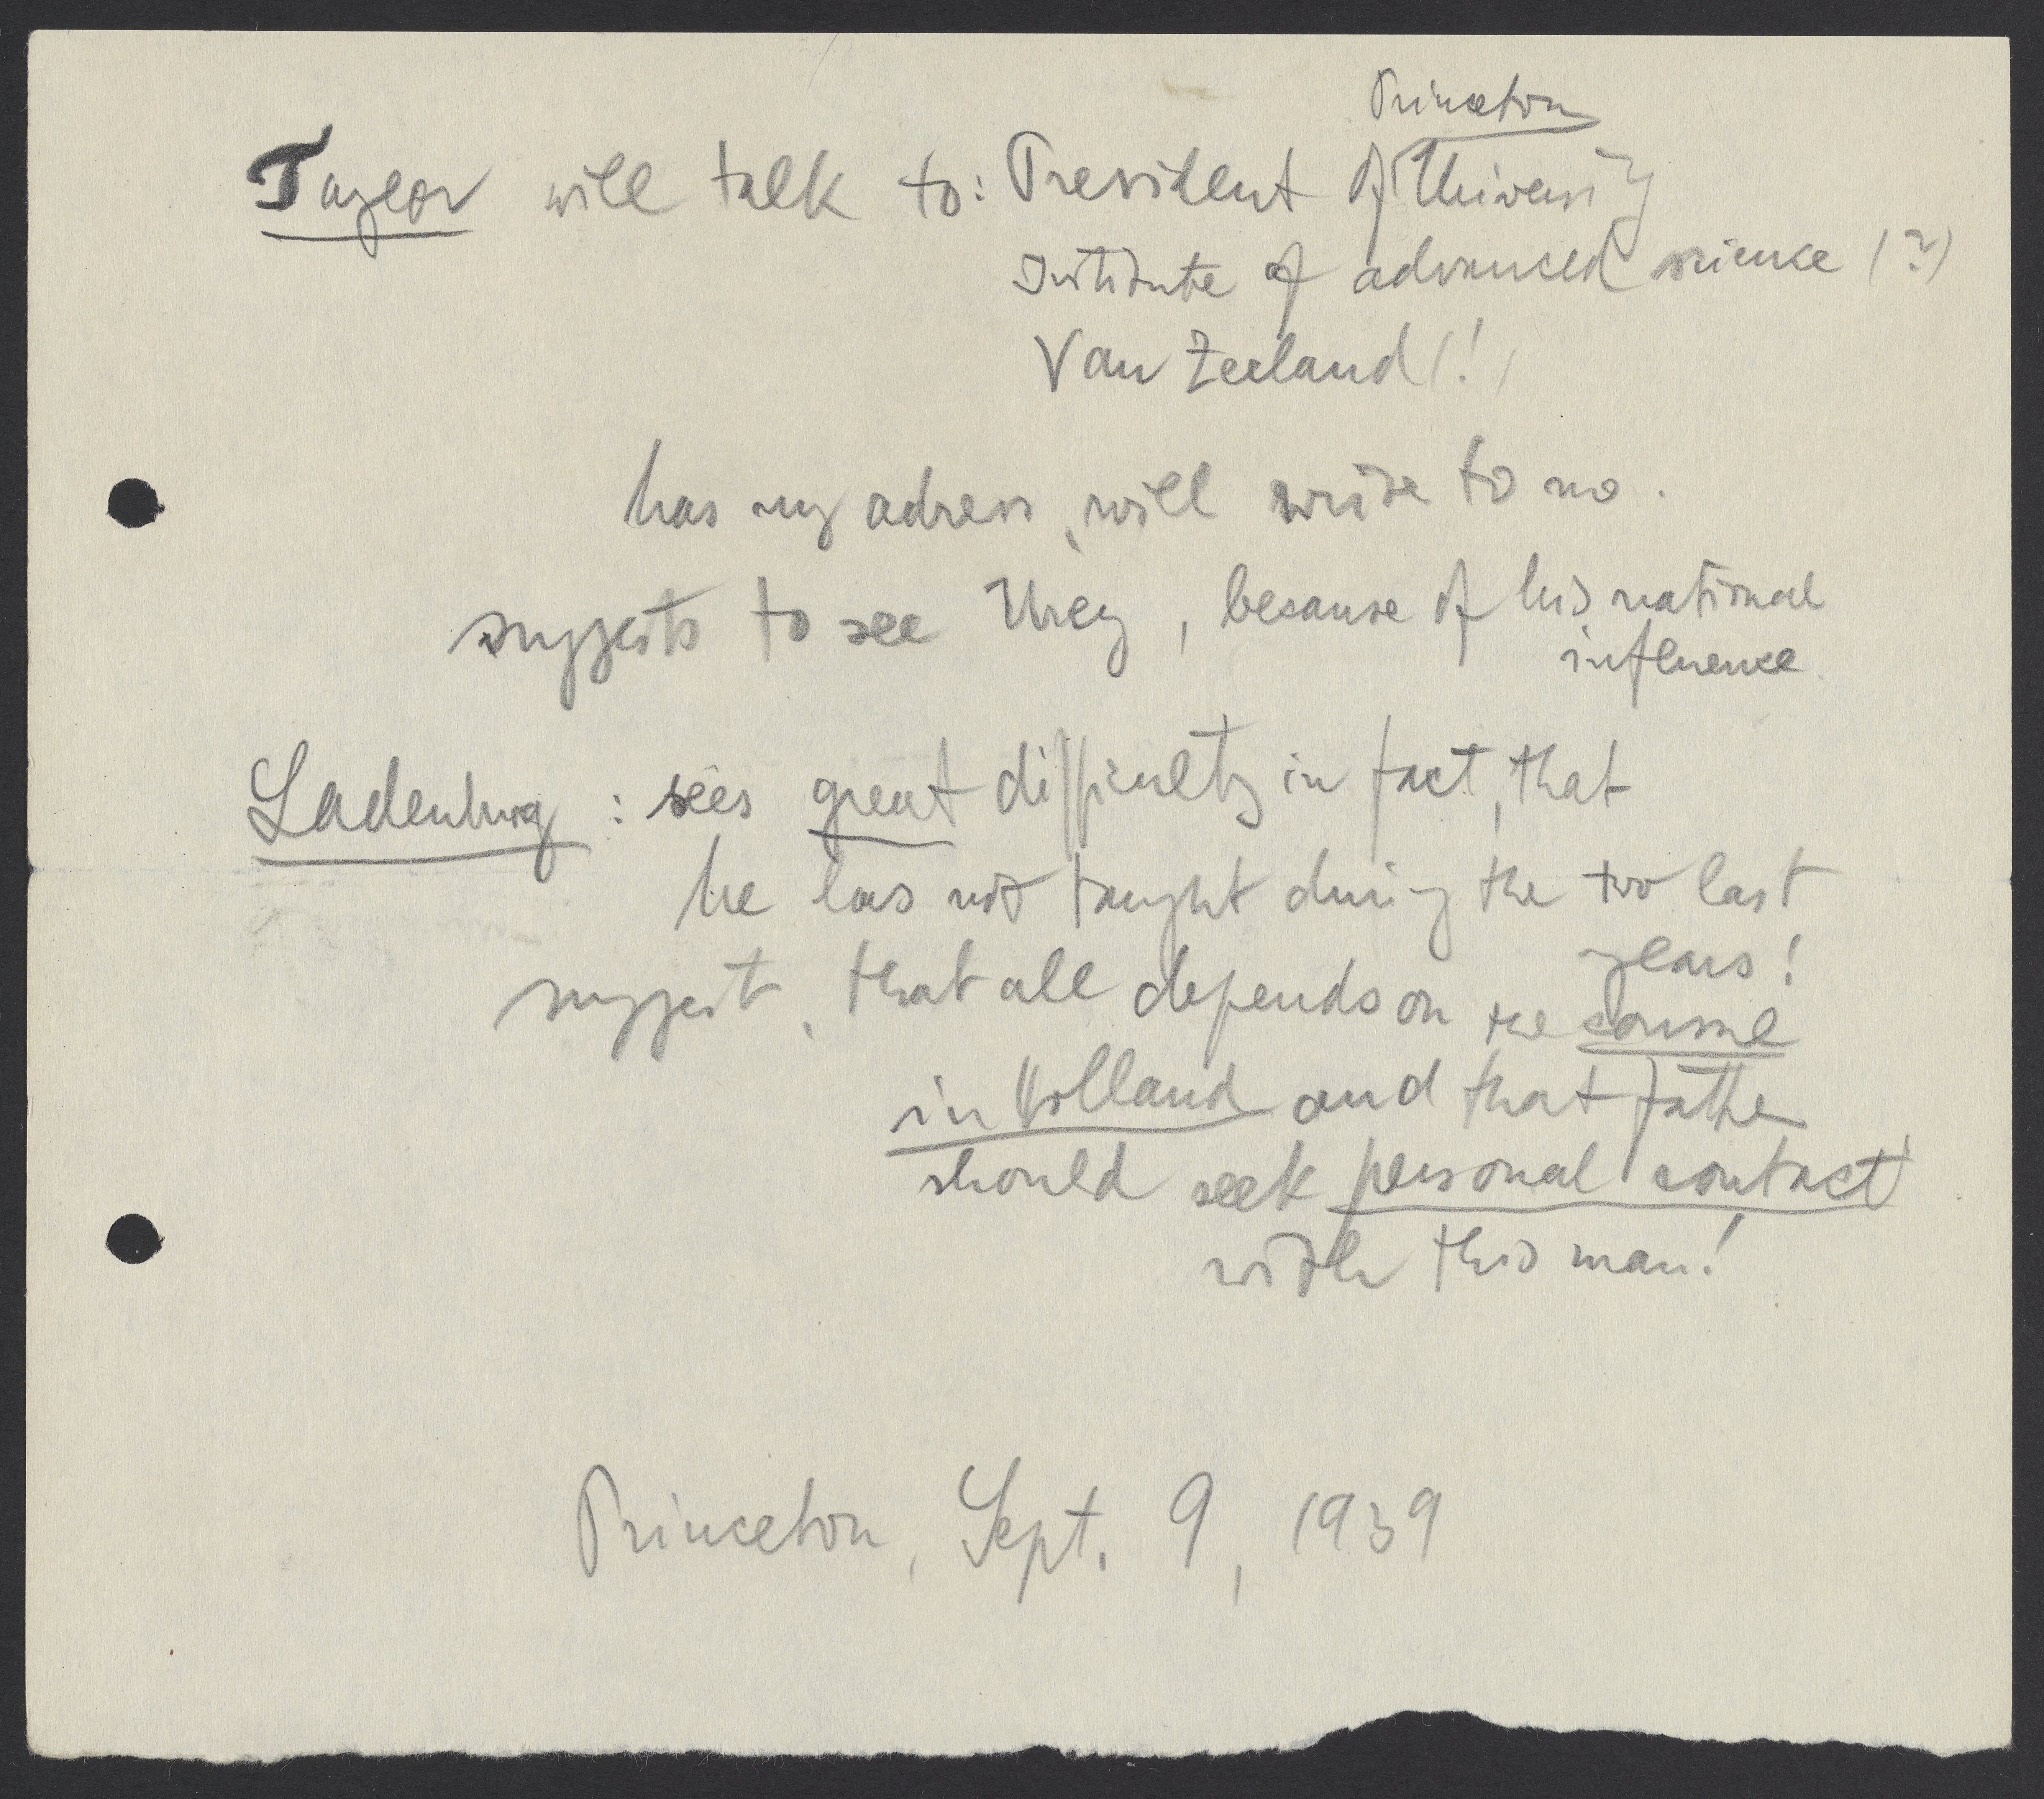 Princeton
Taylor will talk to: President of University
Institute of advanced science (?)
Van Zeeland (!)
has my adress, will write to me.
suggests to see Urey, because of his national
influence.
Ladenburg: sees great difficulty in fact, that
he has not taught during the two last
years!
suggest, that all depends on the consul
in Holland and that father
should seek personal contact
with this man!
Princeton, Sept. 9, 1939